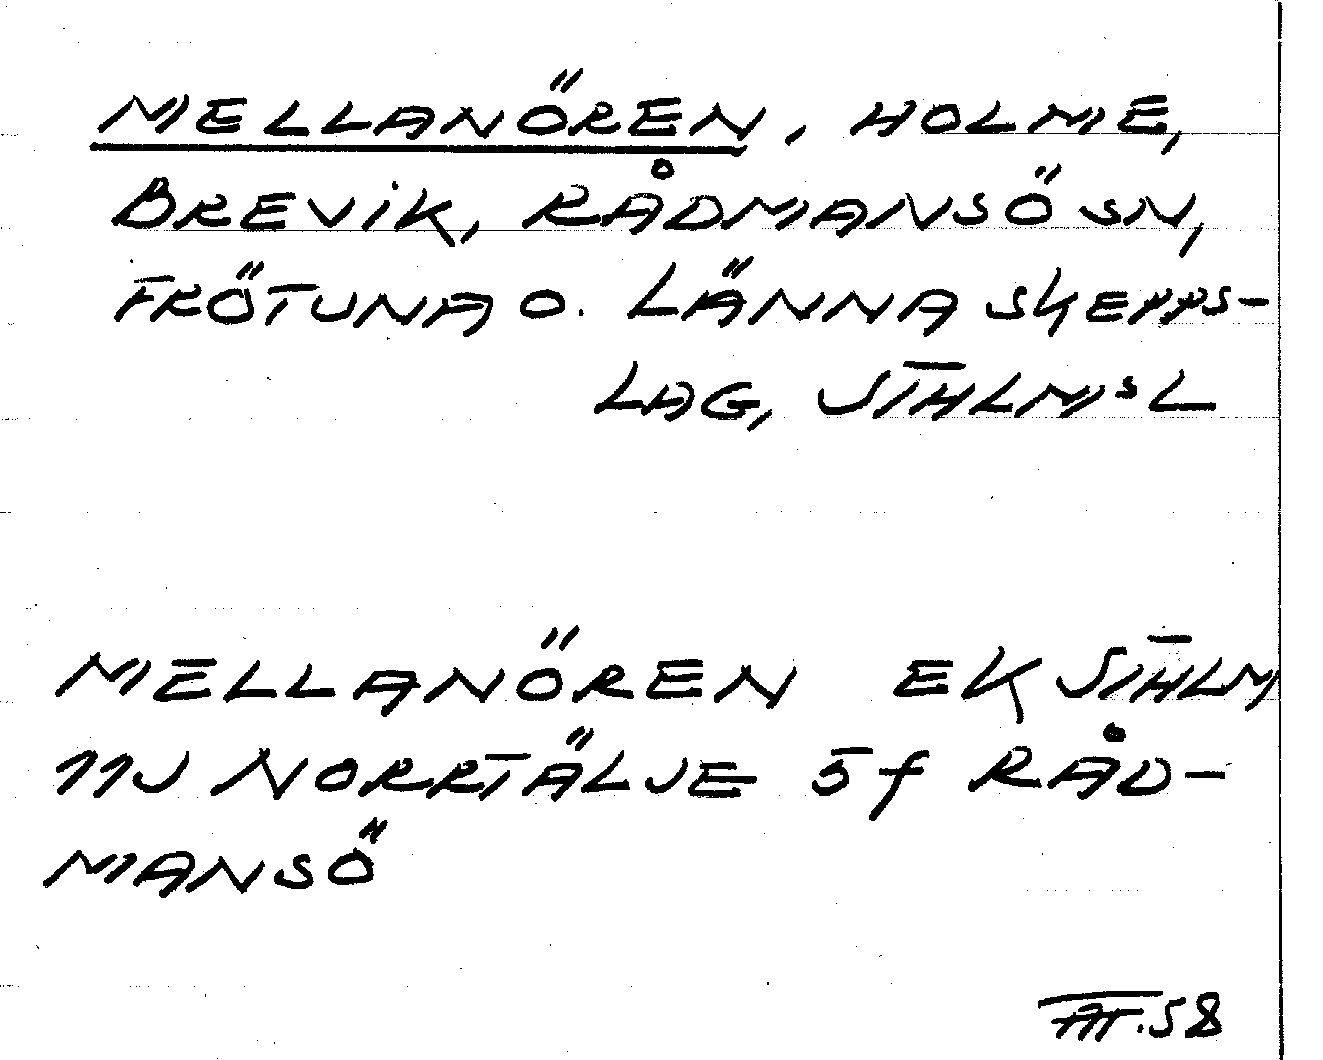 MELLANÖREN, HOLME,
BREVIK, RÅDMANSÖ SN,
FRÖTUNA O. LÄNNA SKEPPS-
LAG, STHLMS L
MELLANÖREN EK STHLM
11J NORRTÄLJE 5f RÅD-
MANSÖ
58